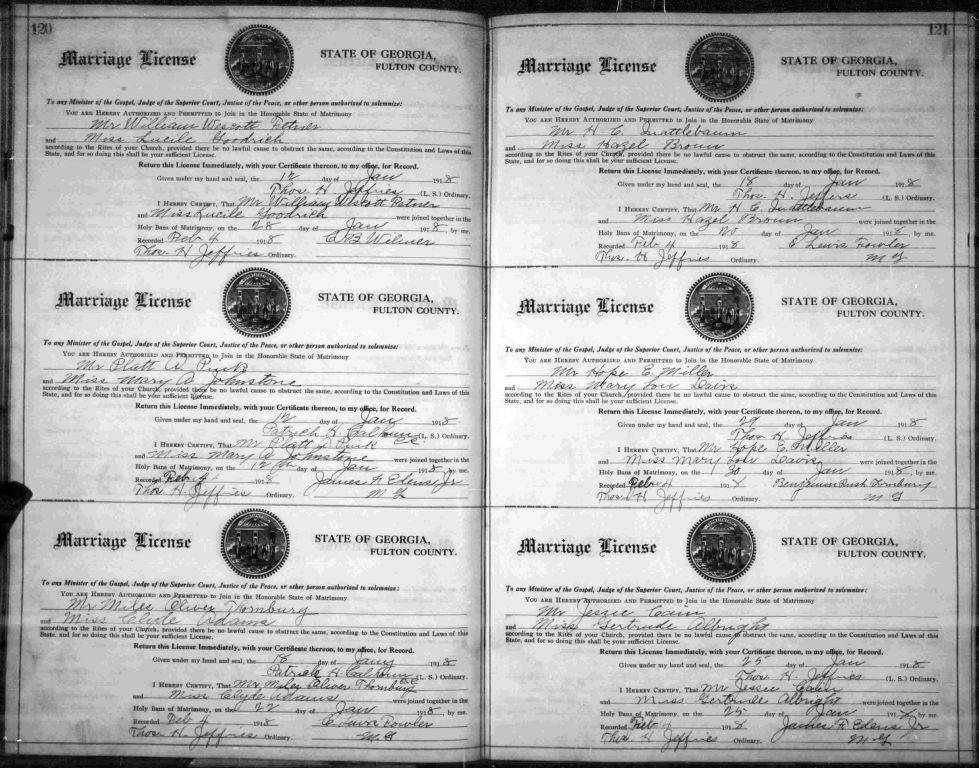 120
Marriage License
STATE OF GEORGIA,
FULTON COUNTY.
To any Minister of the Gospel, Judge of the Superior Court, Justice of the Peace, or other person authorized to solemnize:
YOU ARE HEREBY AUTHORIZED AND PERMITTED to Join in the Honorable State of Matrimony
Mr William Wescott
and Miss Lucile Goodrich
according to the Rites of your Church, provided there be no lawful cause to obstruct the same, according to the Constitution and Laws of this
State, and for so doing this shall be your sufficient License.
Return this License Immediately, with your Certificate thereon, to my office, for Record.
Given under my hand and seal, the 12 day of Jan 1918
Thos. H Jeffries (L. S.) Ordinary.
I HEREBY CERTIFY, That Mr William Wescott
and Miss Lucile Goodrich were joined together in the
Holy Bans of Matrimony, on the 28 day of Jan 1918, by me.
Recorded Feb 4 1918 C B Wilmer
Thos. H Jeffries Ordinary.
Marriage License
STATE OF GEORGIA,
FULTON COUNTY.
To any Minister of the Gospel, Judge of the Superior Court, Justice of the Peace, or other person authorized to solemnize:
YOU ARE HEREBY AUTHORIZED AND PERMITTED to Join in the Honorable State of Matrimony
Mr Platt
and Miss Mary A Johnstone
according to the Rites of your Church, provided there be no lawful cause to obstruct the same, according to the Constitution and Laws of this
State, and for so doing this shall be your sufficient License.
Return this License Immediately, with your Certificate thereon, to my office, for Record.
Given under my hand and seal, the 12 day of Jany 1918
Patrick H Calhoun (L. S.) Ordinary.
I HEREBY CERTIFY, That Mr Platt
and Miss Mary A Johnstone were joined together in the
Holy Bans of Matrimony, on the 12th day of Jan 1918, by me.
Recorded Feb 4 1918 James F Edens Jr
Thos H. Jeffries Ordinary. M G
Marriage License
STATE OF GEORGIA,
FULTON COUNTY.
To any Minister of the Gospel, Judge of the Superior Court, Justice of the Peace, or other person authorized to solemnize:
YOU ARE HEREBY AUTHORIZED AND PERMITTED to Join in the Honorable State of Matrimony
Mr Miles Oliver Thornburg
and Miss Clyde Adams
according to the Rites of your Church, provided there be no lawful cause to obstruct the same, according to the Constitution and Laws of this
State, and for so doing this shall be your sufficient License.
Return this License Immediately, with your Certificate thereon, to my office, for Record.
Given under my hand and seal, the 18 day of Jany 1918
Patrick H. Calhoun (L. S.) Ordinary.
I HEREBY CERTIFY, That Mr Miles Oliver Thornburg
and Miss Clyde Adams were joined together in the
Holy Bans of Matrimony, on the 22 day of Jan 1918, by me.
Recorded Feb 4 1918 C Lewis Fowler
Thos H. Jeffries Ordinary. M G
121
Marriage License
STATE OF GEORGIA,
FULTON COUNTY.
To any Minister of the Gospel, Judge of the Superior Court, Justice of the Peace, or other person authorized to solemnize:
YOU ARE HEREBY AUTHORIZED AND PERMITTED to Join in the Honorable State of Matrimony
Mr H C Quattlebaum
and Miss Hazel Brown
according to the Rites of your Church, provided there be no lawful cause to obstruct the same, according to the Constitution and Laws of this
State, and for so doing this shall be your sufficient License.
Return this License Immediately, with your Certificate thereon, to my office, for Record.
Given under my hand and seal, the 18 day of Jan 1918
Thos. H. Jeffers (L. S.) Ordinary.
I HEREBY CERTIFY, That Mr H C Quattlebaum
and Miss Hazel Brown were joined together in the
Holy Bans of Matrimony, on the 20 day of Jan 1918, by me.
Recorded Feb 4 1918 C Lewis Fowler
Thos. H Jeffries Ordinary. M G
Marriage License
STATE OF GEORGIA,
FULTON COUNTY.
To any Minister of the Gospel, Judge of the Superior Court, Justice of the Peace, or other person authorized to solemnize:
YOU ARE HEREBY AUTHORIZED AND PERMITTED to Join in the Honorable State of Matrimony
Mr Hope E. Miller
and Miss Mary Lou Davis
according to the Rites of your Church, provided there be no lawful cause to obstruct the same, according to the Constitution and Laws of this
State, and for so doing this shall be your sufficient License.
Return this License Immediately, with your Certificate thereon, to my office, for Record.
Given under my hand and seal, the 29 day of Jan 1918
Thos H Jeffries (L. S.) Ordinary.
I HEREBY CERTIFY, That Mr Hope E Miller
and Miss Mary Lou Davis were joined together in the
Holy Bans of Matrimony, on the 30 day of Jan 1918, by me.
Recorded Feb 4 1918 Benjamin Rush
Thos. H Jeffries Ordinary. M G
Marriage License
STATE OF GEORGIA,
FULTON COUNTY.
To any Minister of the Gospel, Judge of the Superior Court, Justice of the Peace, or other person authorized to solemnize:
YOU ARE HEREBY AUTHORIZED AND PERMITTED to Join in the Honorable State of Matrimony
Mr Jessie Cain
and Miss Gertrude Albright
according to the Rites of your Church, provided there be no lawful cause to obstruct the same, according to the Constitution and Laws of this
State, and for so doing this shall be your sufficient License.
Return this License Immediately, with your Certificate thereon, to my office, for Record.
Given under my hand and seal, the 25 day of Jan 1918
Thos. H Jeffries (L. S.) Ordinary.
I HEREBY CERTIFY, That Mr Jessie Cain
and Miss Gertrude Albright were joined together in the
Holy Bans of Matrimony, on the 25 day of Jan 1918, by me.
Recorded Feb 4 1918 James F Edens Jr
Thos H Jeffries Ordinary. M G